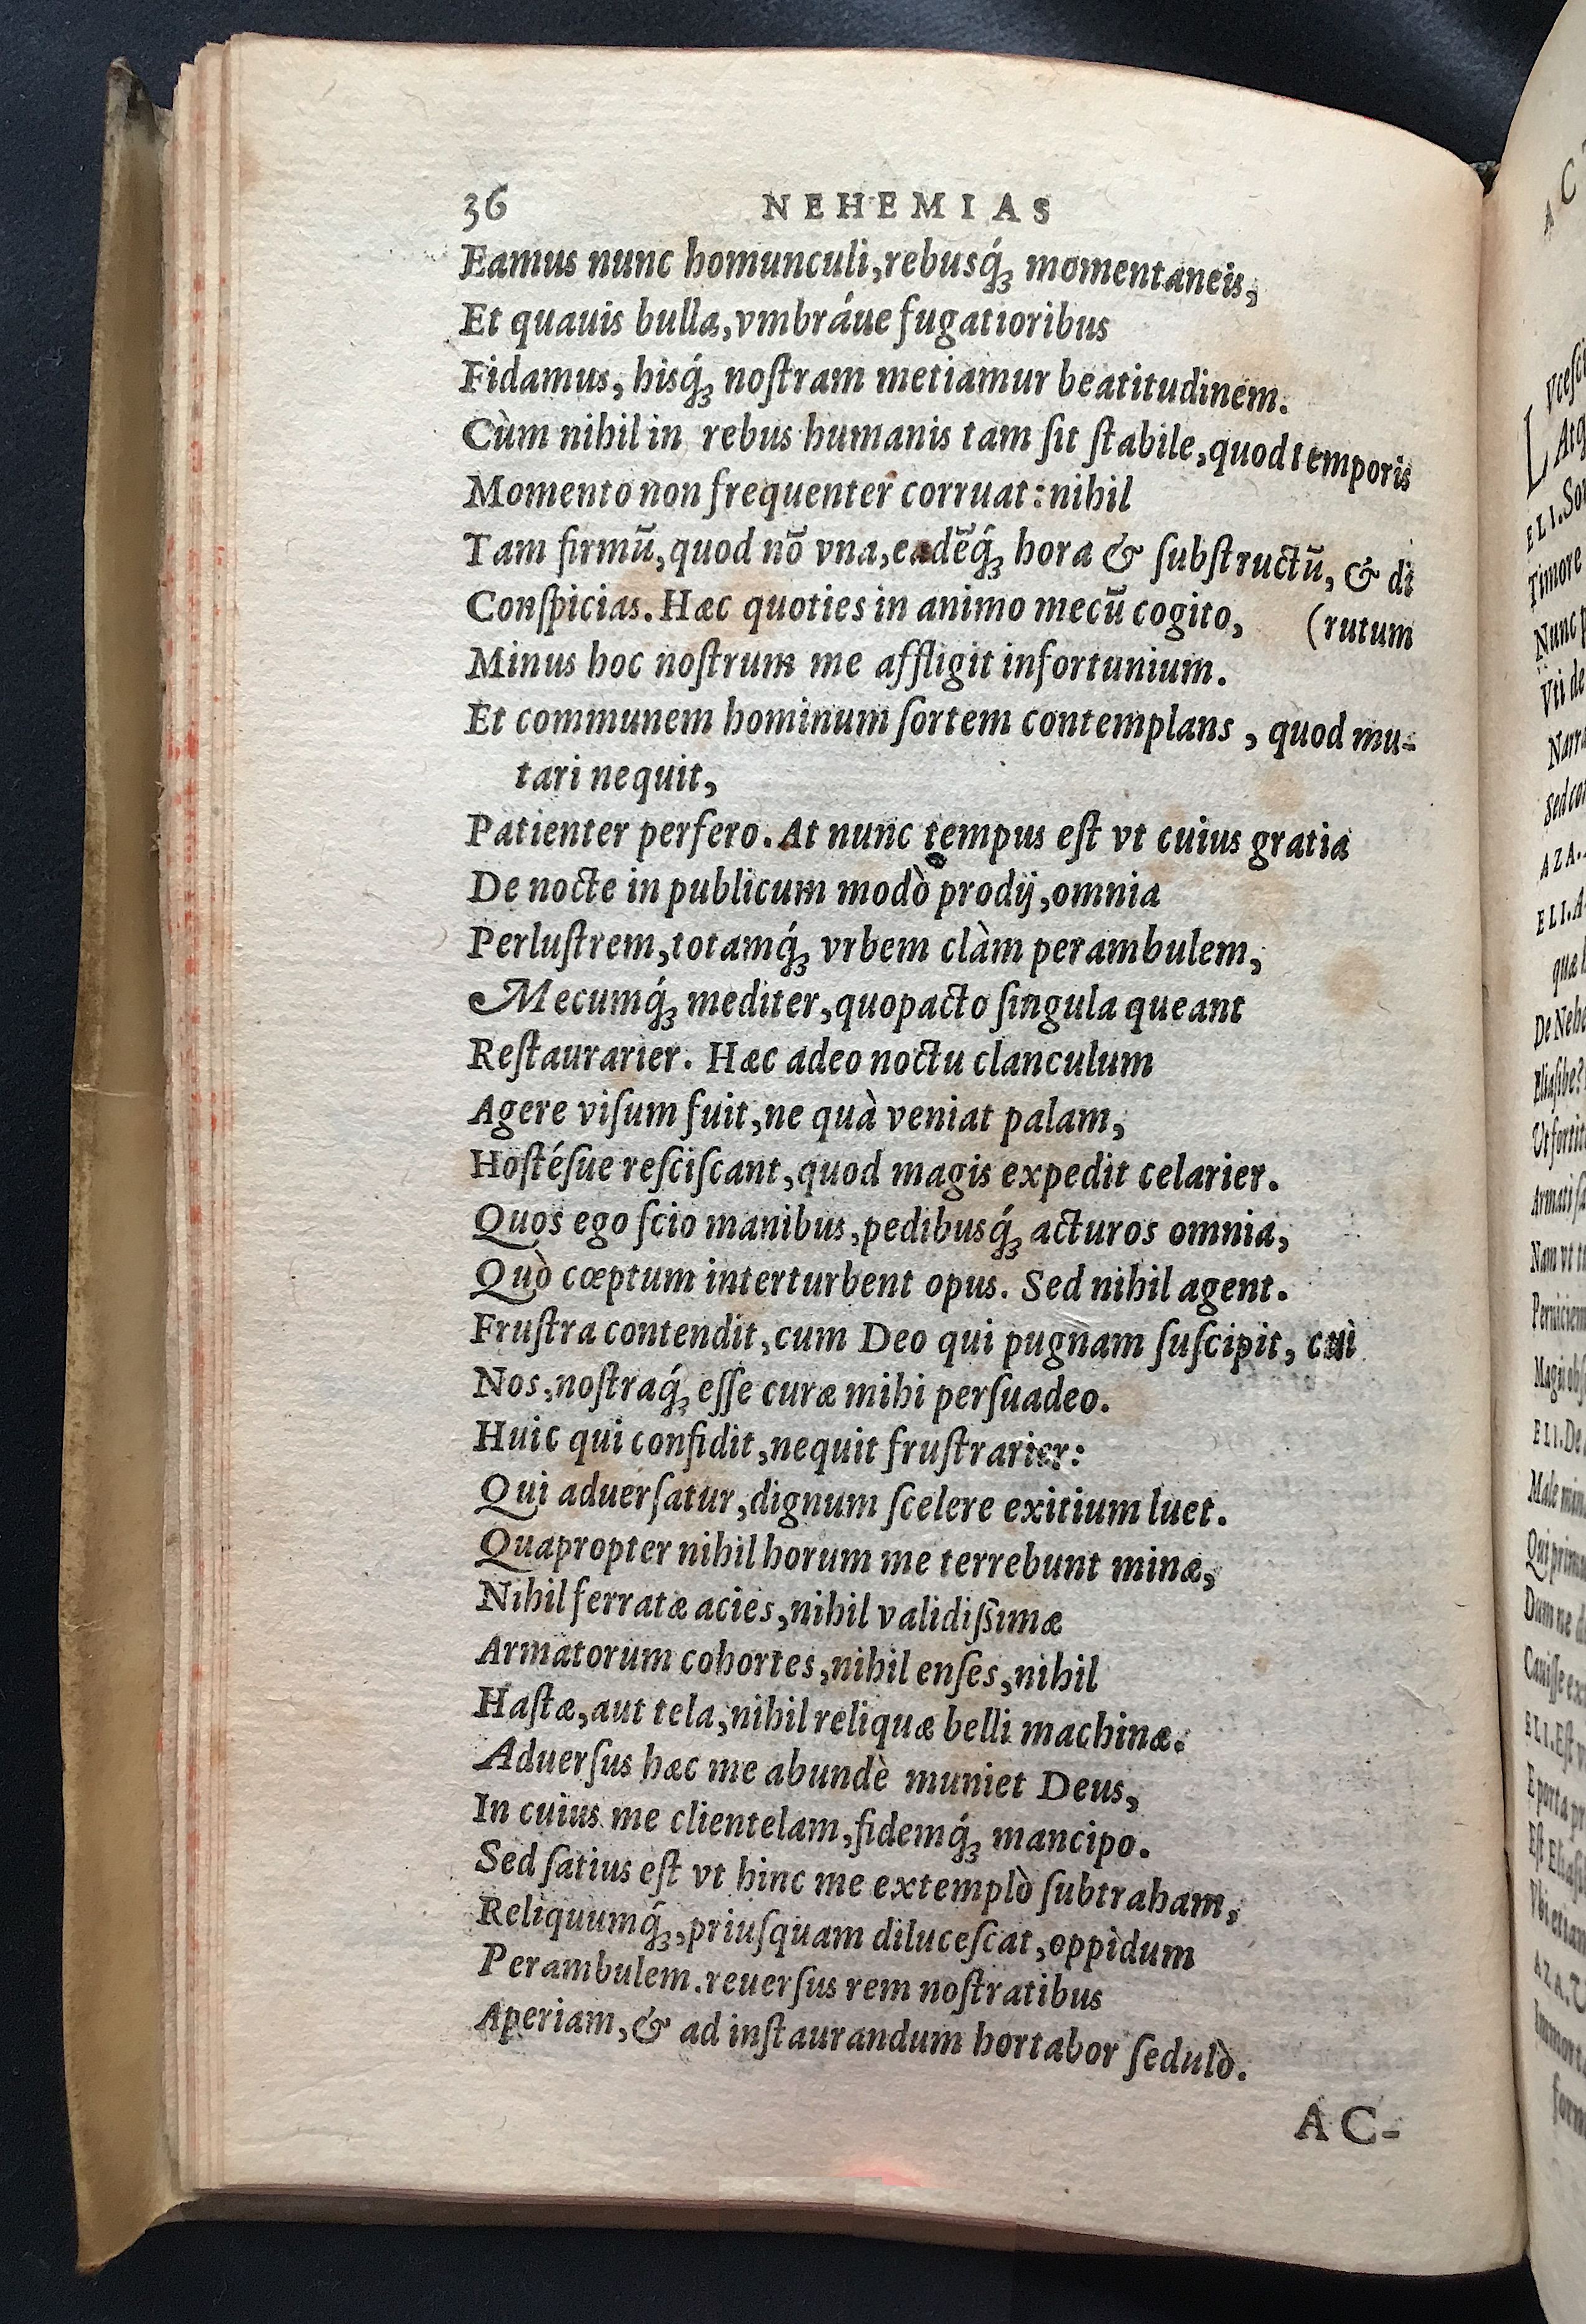 36 NEHEMIAS
Eamus nunc homunculi, rebusq́ꝫ momentaneis,
Et quauis bulla, vmbráue fugatioribus
Fidamus, hisq́ꝫ noſtram metiamur beatitudinem.
Cùm nihil in rebus humanis tam ſit ſtabile, quod temporis
Momento non frequenter corruat: nihil
Tam firmū, quod nō vna, eadēq́ꝫ hora & ſubſtructū, & di
Conſpicias. Hæc quoties in animo mecū cogito, (rutum
Minus hoc noſtrum me affligit infortunium.
Et communem hominum ſortem contemplans, quod mu-
tari nequit,
Patienter perfero. At nunc tempus eſt vt cuius gratia
De nocte in publicum modò prodij, omnia
Perluſtrem, totamq́ꝫ vrbem clàm perambulem,
Mecumq́ꝫ mediter, quo pacto ſingula queant
Reſtaurarier. Hæc adeo noctu clanculum
Agere viſum fuit, ne quà veniat palam,
Hoſtéſue reſciſcant, quod magis expedit celarier.
Quos ego ſcio manibus, pedibusq́ꝫ acturos omnia,
Quò cœptum interturbent opus. Sed nihil agent.
Fruſtra contendit, cum Deo qui pugnam ſuſcipit, cui
Nos, noſtraq́ꝫ eſſe curæ mihi perſuadeo.
Huic qui confidit, nequit fruſtrarier:
Qui aduerſatur, dignum ſcelere exitium luet.
Quapropter nihil horum me terrebunt minæ,
Nihil ferratæ acies, nihil validiſsimæ
Armatorum cohortes, nihil enſes, nihil
Haſtæ, aut tela, nihil reliquæ belli machinæ.
Aduerſus hæc me abundè muniet Deus,
In cuius me clientelam, fidemq́ꝫ mancipo.
Sed ſatius eſt vt hinc me extemplò ſubtraham,
Reliquumq́ꝫ, priuſquam diluceſcat, oppidum
Perambulem. reuerſus rem noſtratibus
Aperiam, & ad inſtaurandum hortabor ſedulò.
AC-